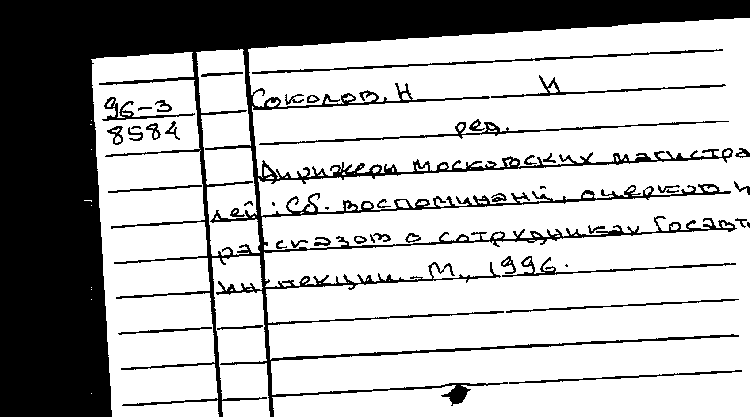 96-3
8584
Соколов, Н И
ред.
Дирижеры московских магистра
лей: Сб. воспоминаний, очерков и
рассказов о сотрудниках Госавто
инспекции. - М., 1996.